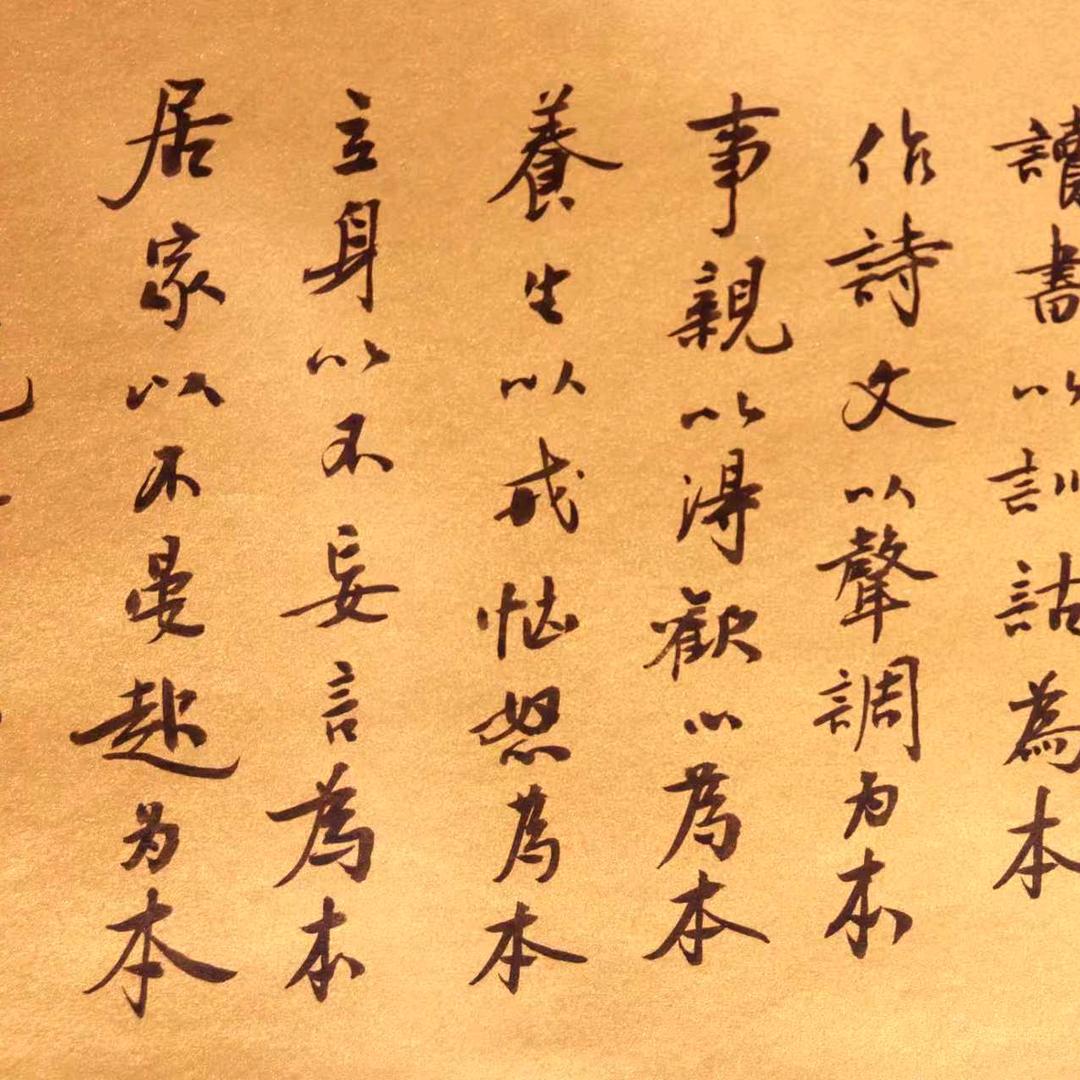 讀書以訓詁為本
作詩文以聲調为本
事親以得歡心為本
養生以戒恼怒為本
立身以不妄言為本
居家以不晏起为本